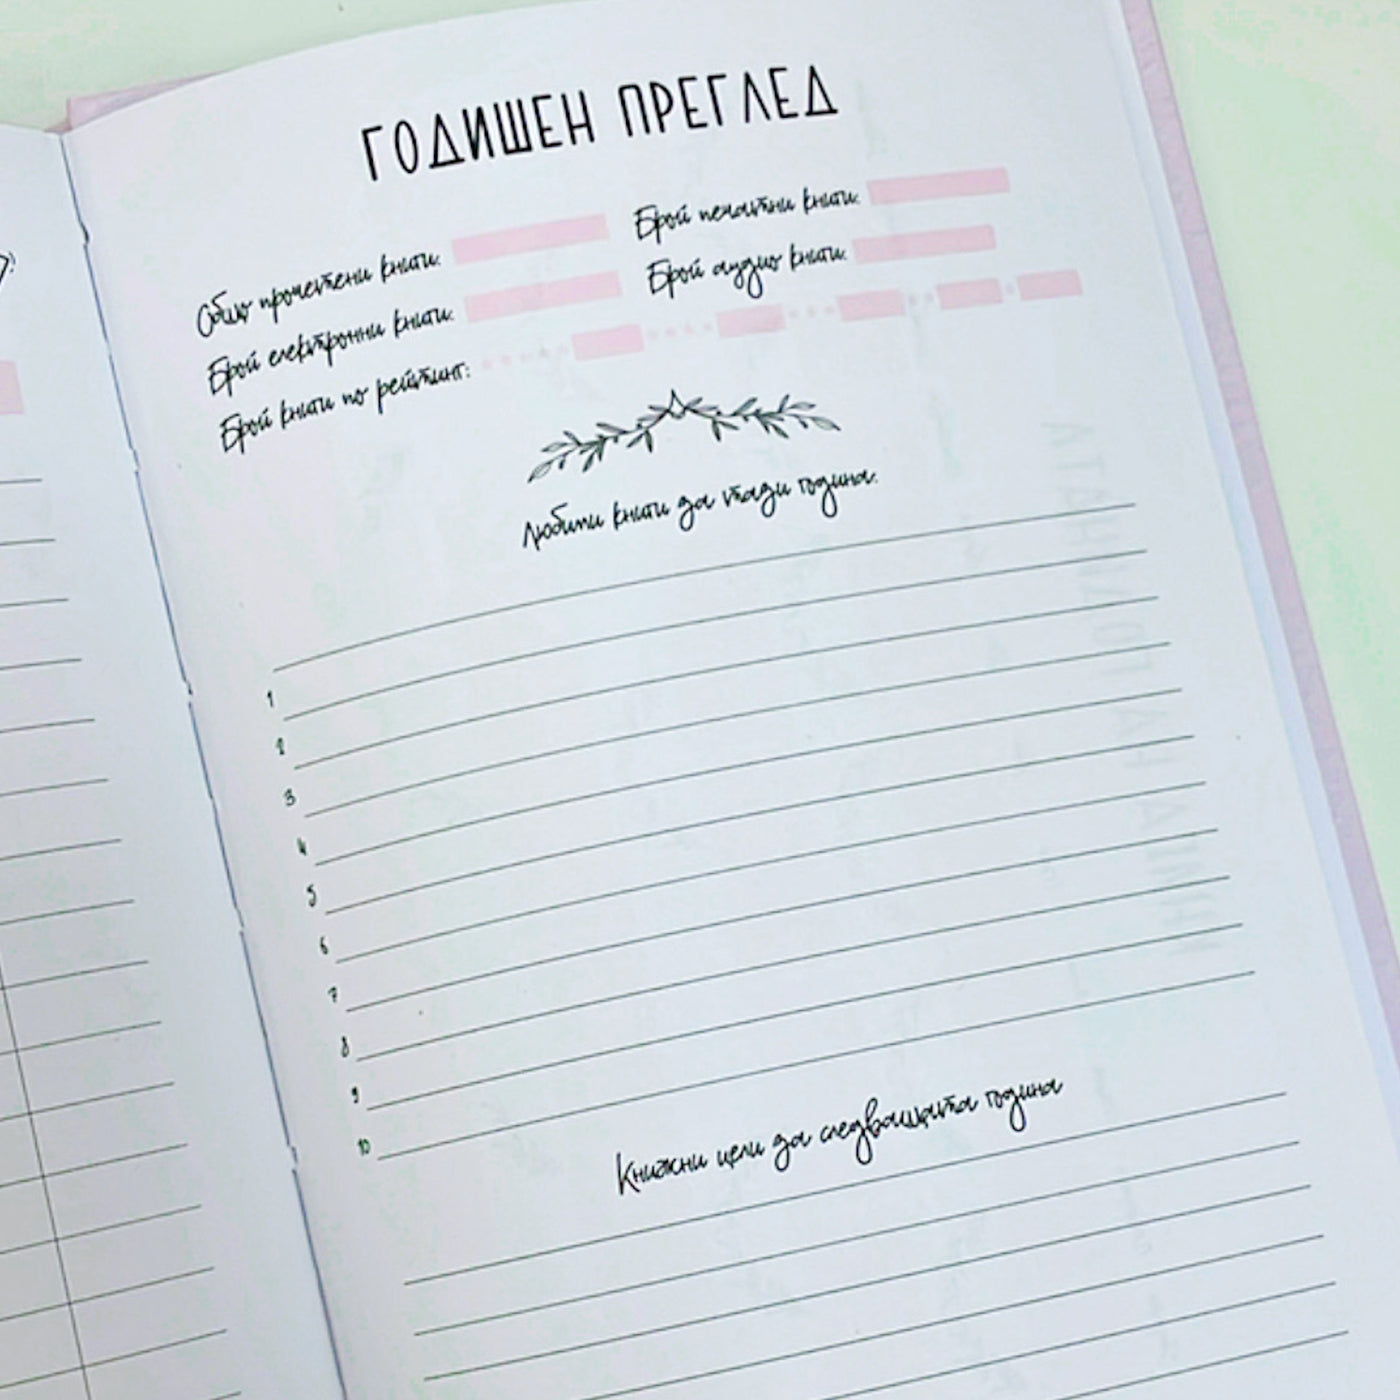 ГОДИШЕН ПРЕГЛЕД
Общо прочетени книги:
Брой печатни книги:
Брой електронни книги:
Брой аудио книги:
Брой книги по рейтинг:
Любими книги за тази година:
1
2
3
4
5
6
7
8
9
10
Книжни цели за следващата година